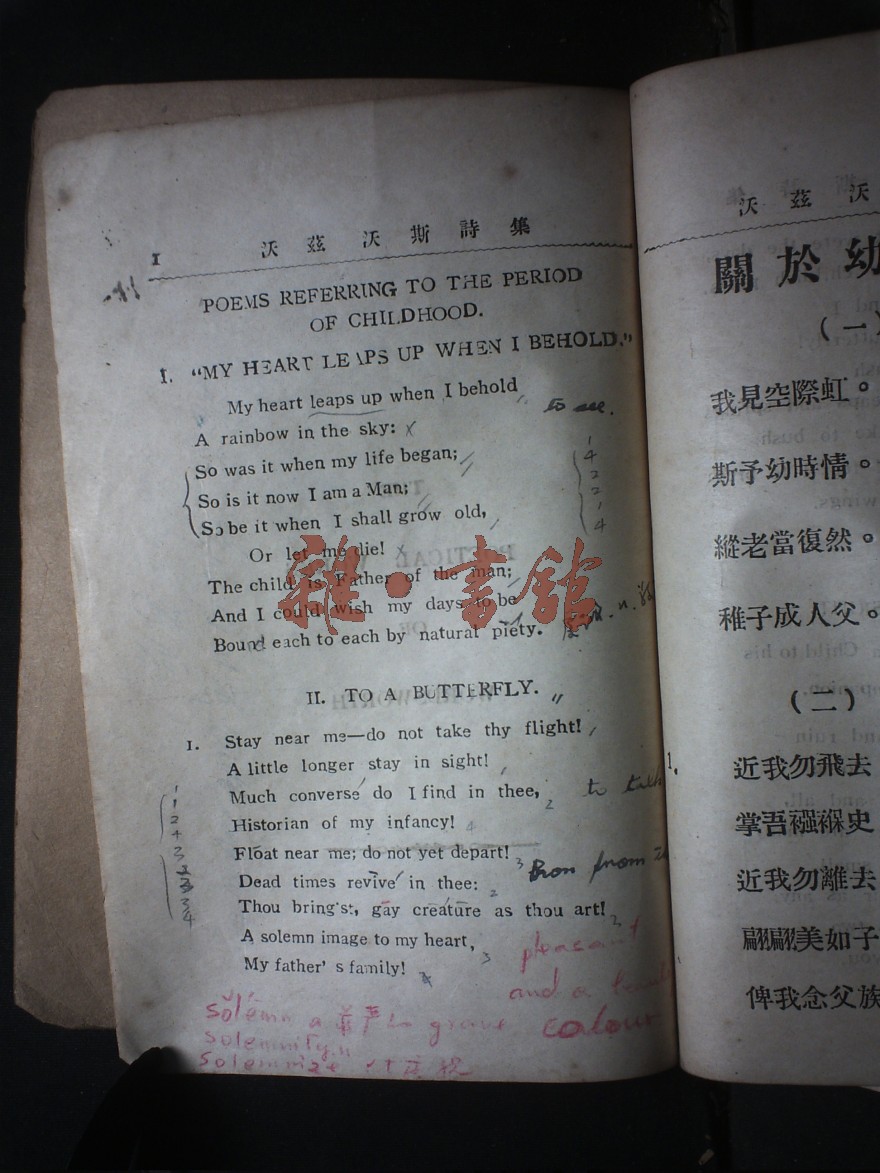 1 沃茲沃斯詩集
POEMS REFERRING TO THE PERIOD
OF CHILDHOOD.
I. "MY HEART LEAPS UP WHEN I BEHOLD."
My heart leaps up when I behold to see.
A rainbow in the sky:
So was it when my life began;
So is it now I am a Man;
So be it when I shall grow old,
Or let me die!
The child is Father of the man;
And I could wish my days to be
Bound each to each by natural piety.
雜·書館
II. TO A BUTTERFLY.
1. Stay near me—do not take thy flight!
A little longer stay in sight!
Much converse do I find in thee,
Historian of my infancy!
Float near me; do not yet depart!
Dead times revive in thee:
Thou bring'st, gay creature as thou art!
A solemn image to my heart,
My father's family!
pleasant
and a
colour
solemn a grave
solemnity n
solemnize
沃茲沃
關於幼
(一)
我見空際虹。
斯予幼時情。
縱老當復然。
稚子成人父。
(二)
1. 近我勿飛去
掌吾襁褓史
近我勿離去
翩翩美如子
俾我念父族